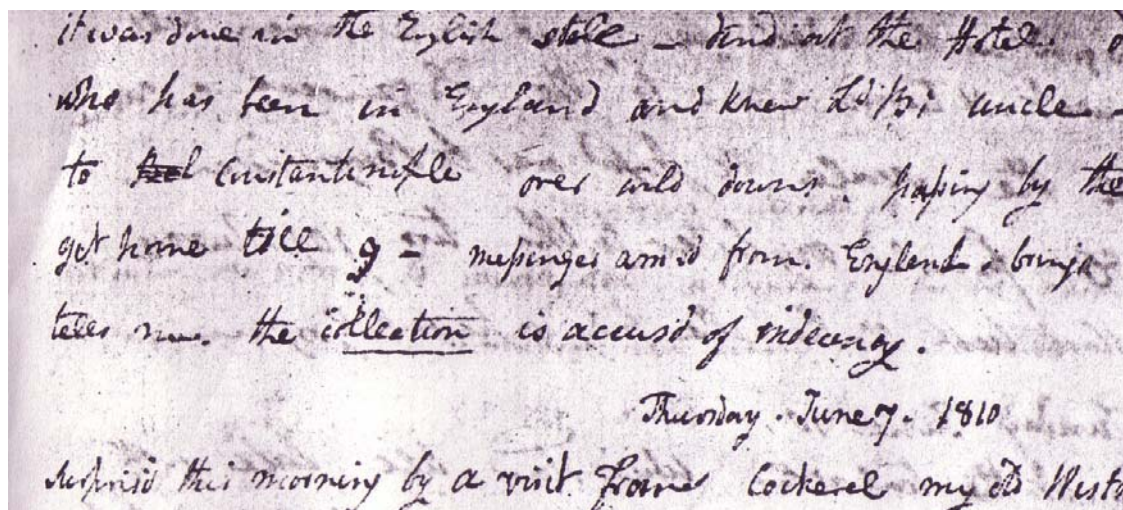 it was done in the English stile - dind at the Hotel
who has been in England and knew Ld Bs uncle -
to Constantinople over wild downs. passing by the
get home till 9 - messenger arrivd from England. brings
tells me. the collection is accusd of indecency.
Thursday. June 7. 1810
surprisd this morning by a visit from Cockerel my old